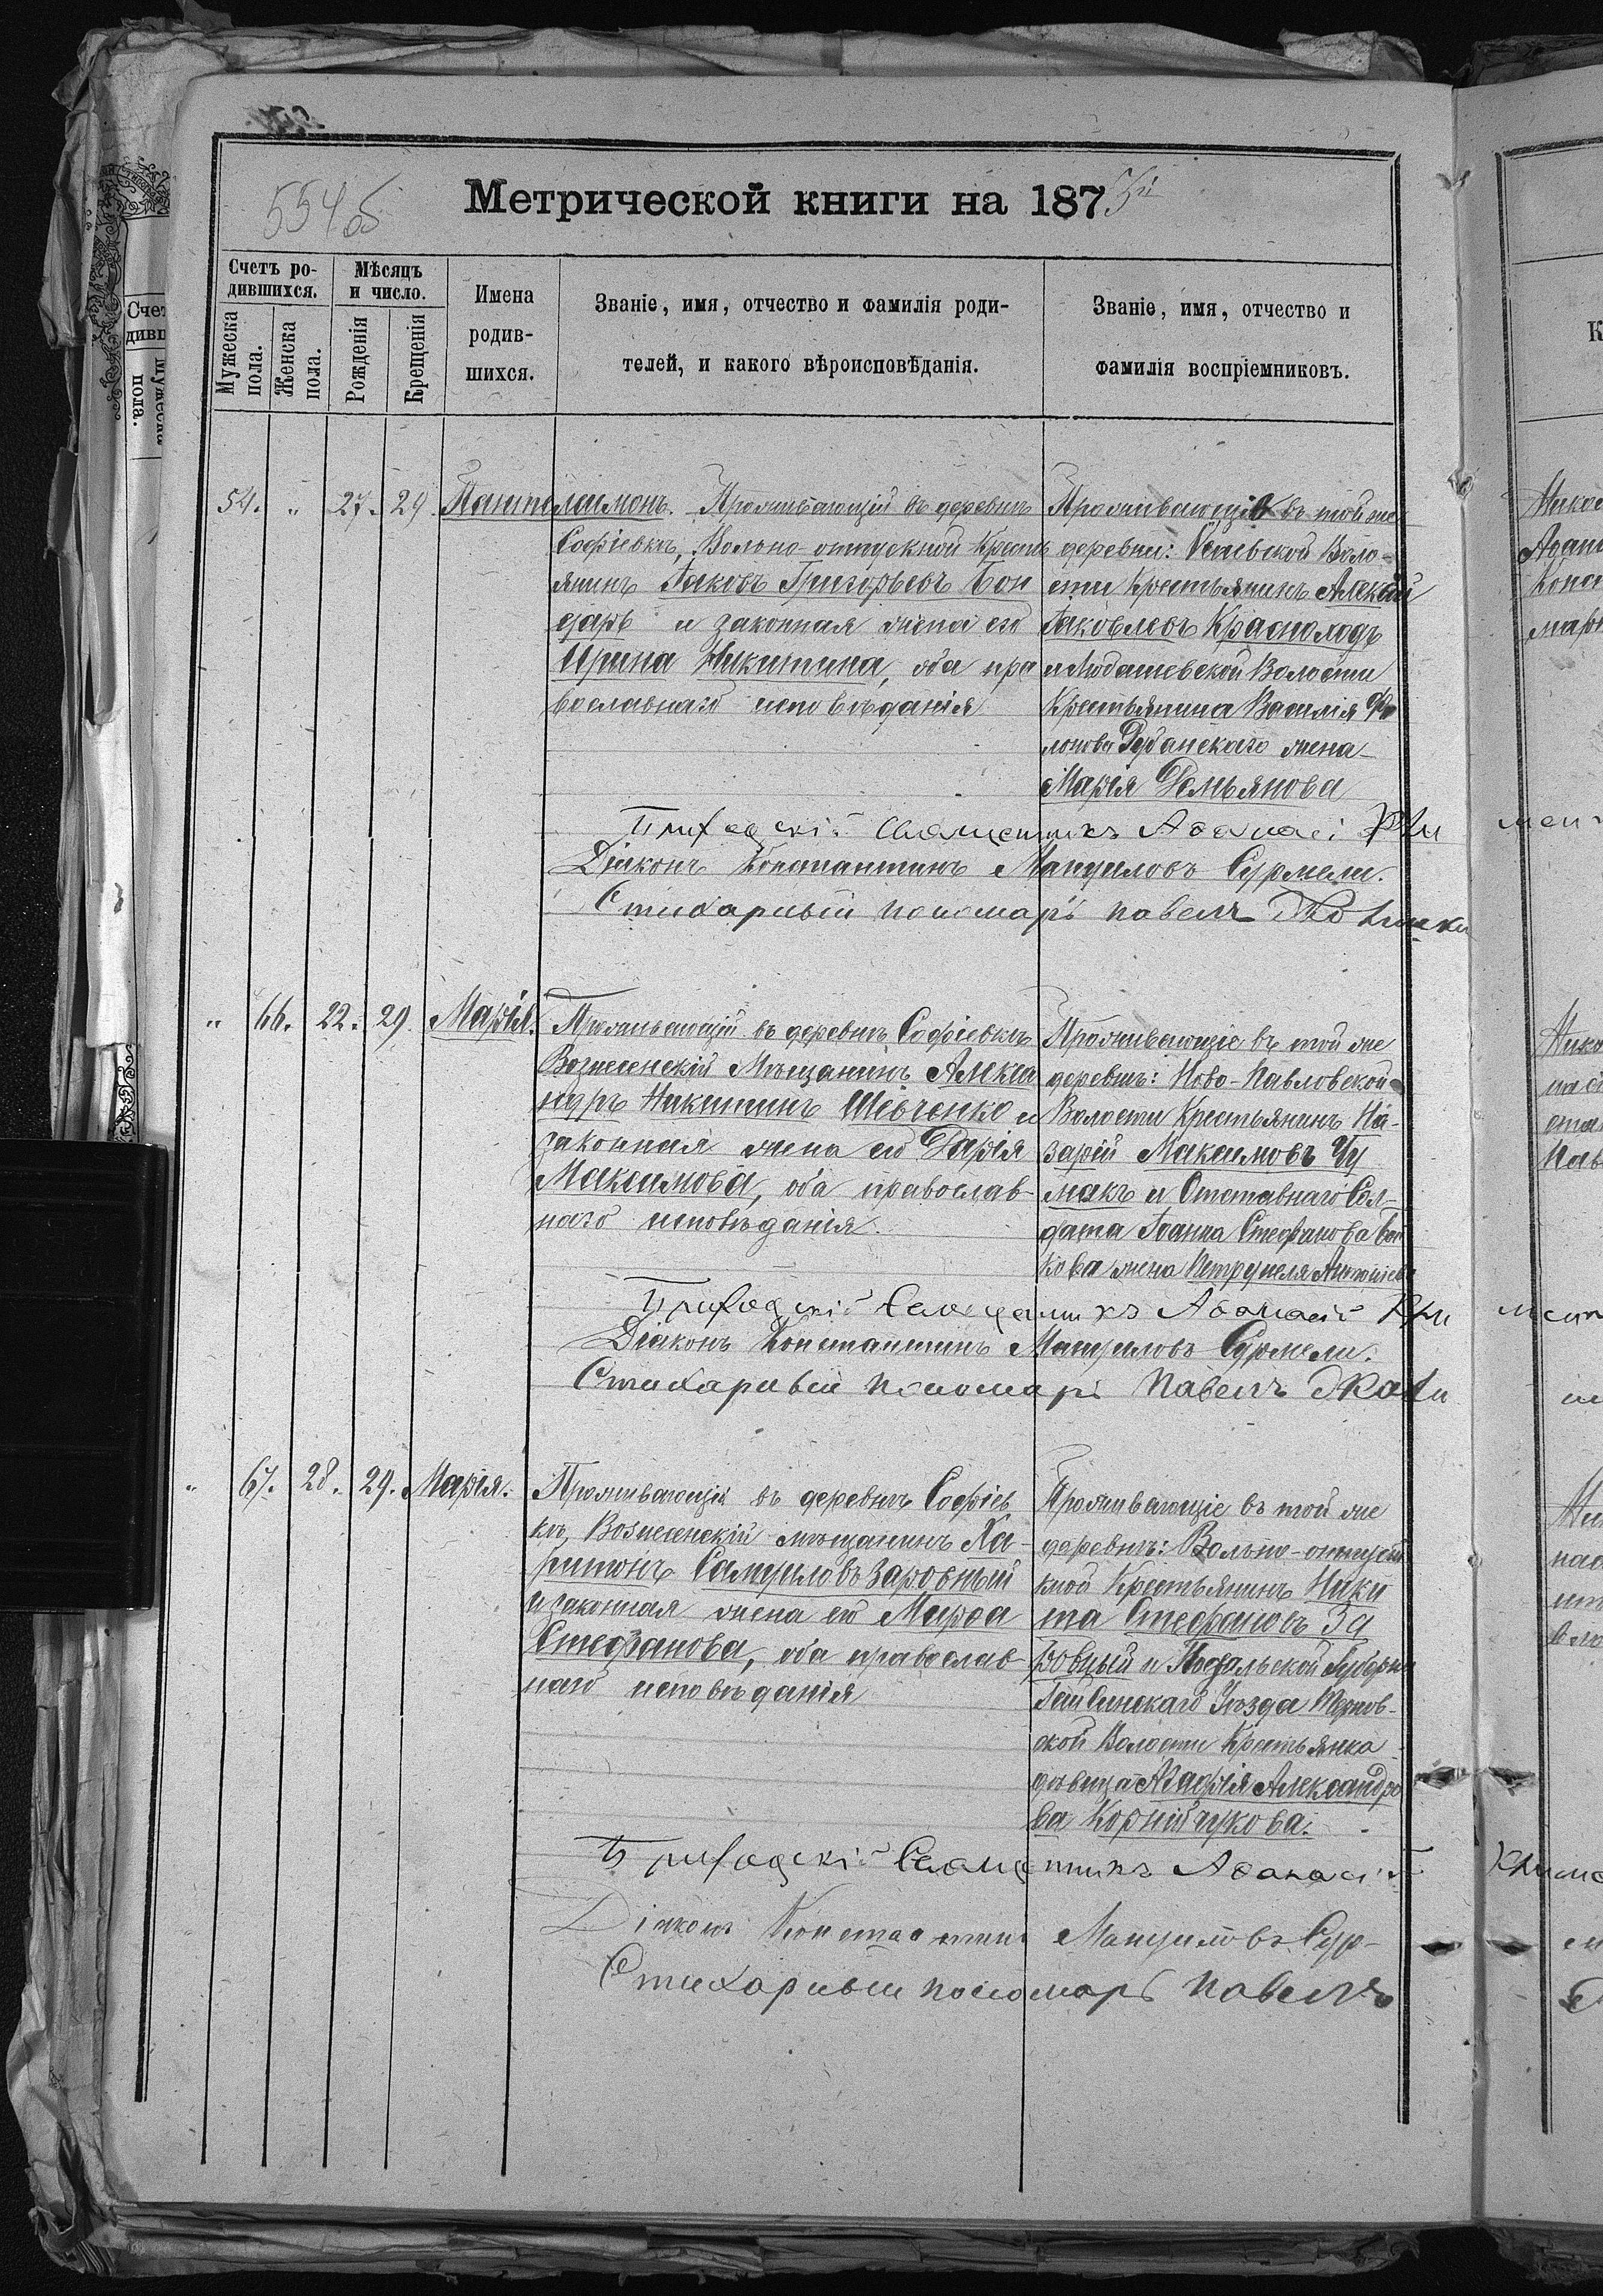 554 об
Метрической книги на 1875й
Счетъ ро-
дившихся.
Мѣсяцъ
и число.
Мужеска
пола.
Женска
пола.
Рожденія
Крещенія
Имена
родив-
шихся.
Званіе, имя, отчество и фамилія роди-
телей, и какого вѣроисповѣданія.
Званіе, имя, отчество и
фамилія воспріемниковъ.
54. " 27. 29. Пантелиимонъ.
Проживающій въ деревнѣ
Софіевкѣ, Вольно-отпускной Кресть
янинъ Іаковъ Григорьевъ Бон
дарь и законная жена его
Ирина Никитина, оба пра
вославнаго исповѣданія
Проживающіе въ той же
деревни: Воло-
сти Крестьянинъ Алексѣй
Іаковлевъ Краснолодъ
и Любашевской Волости
Крестьянина Василія Фи
лонова жена
Марія Демьянова
Приходскій Священникъ Аѳанасій
Діаконъ Константинъ Мануиловъ Сурмели.
Стихарный пономарь Павелъ
" 66. 22. 29. Марія.
Проживающій въ деревнѣ Софіевкѣ
Вознесенскій Мѣщанинъ Алекса
ндръ Никитинъ Шевченко и
законная жена его Дарія
Максимова, оба православ-
наго исповѣданія.
Проживающіе въ той же
деревнѣ: Ново-Павловской
Волости Крестьянинъ На-
зарій Максимовъ Чу
макъ и Отставнаго Сол-
дата Іоанна Стефанова
кова жена Петрунеля
Приходскій Священникъ Аѳанасій
Діаконъ Константинъ Мануиловъ Сурмели.
Стихарный пономарь Павелъ
" 67. 28. 29. Марія.
Проживающій въ деревнѣ Софіев
кѣ, Вознесенскій мѣщанинъ Ха-
ритонъ Самуиловъ Заровный
и законная жена его Марѳа
Стефанова, оба православ-
наго исповѣданія
Проживающіе въ той же
деревнѣ: Вольно-отпуст
кной Крестьянинъ Ники
та Стефановъ За
ровный и Подольской Губерніи
Гайсинскаго Уѣзда
ской Волости Крестьянка
дѣвица Агафія Александро
ва Корнійчукова.
Приходскій Священникъ Аѳанасій
Діаконъ Константинъ Мануиловъ Сур-
Стихарный пономарь Павелъ